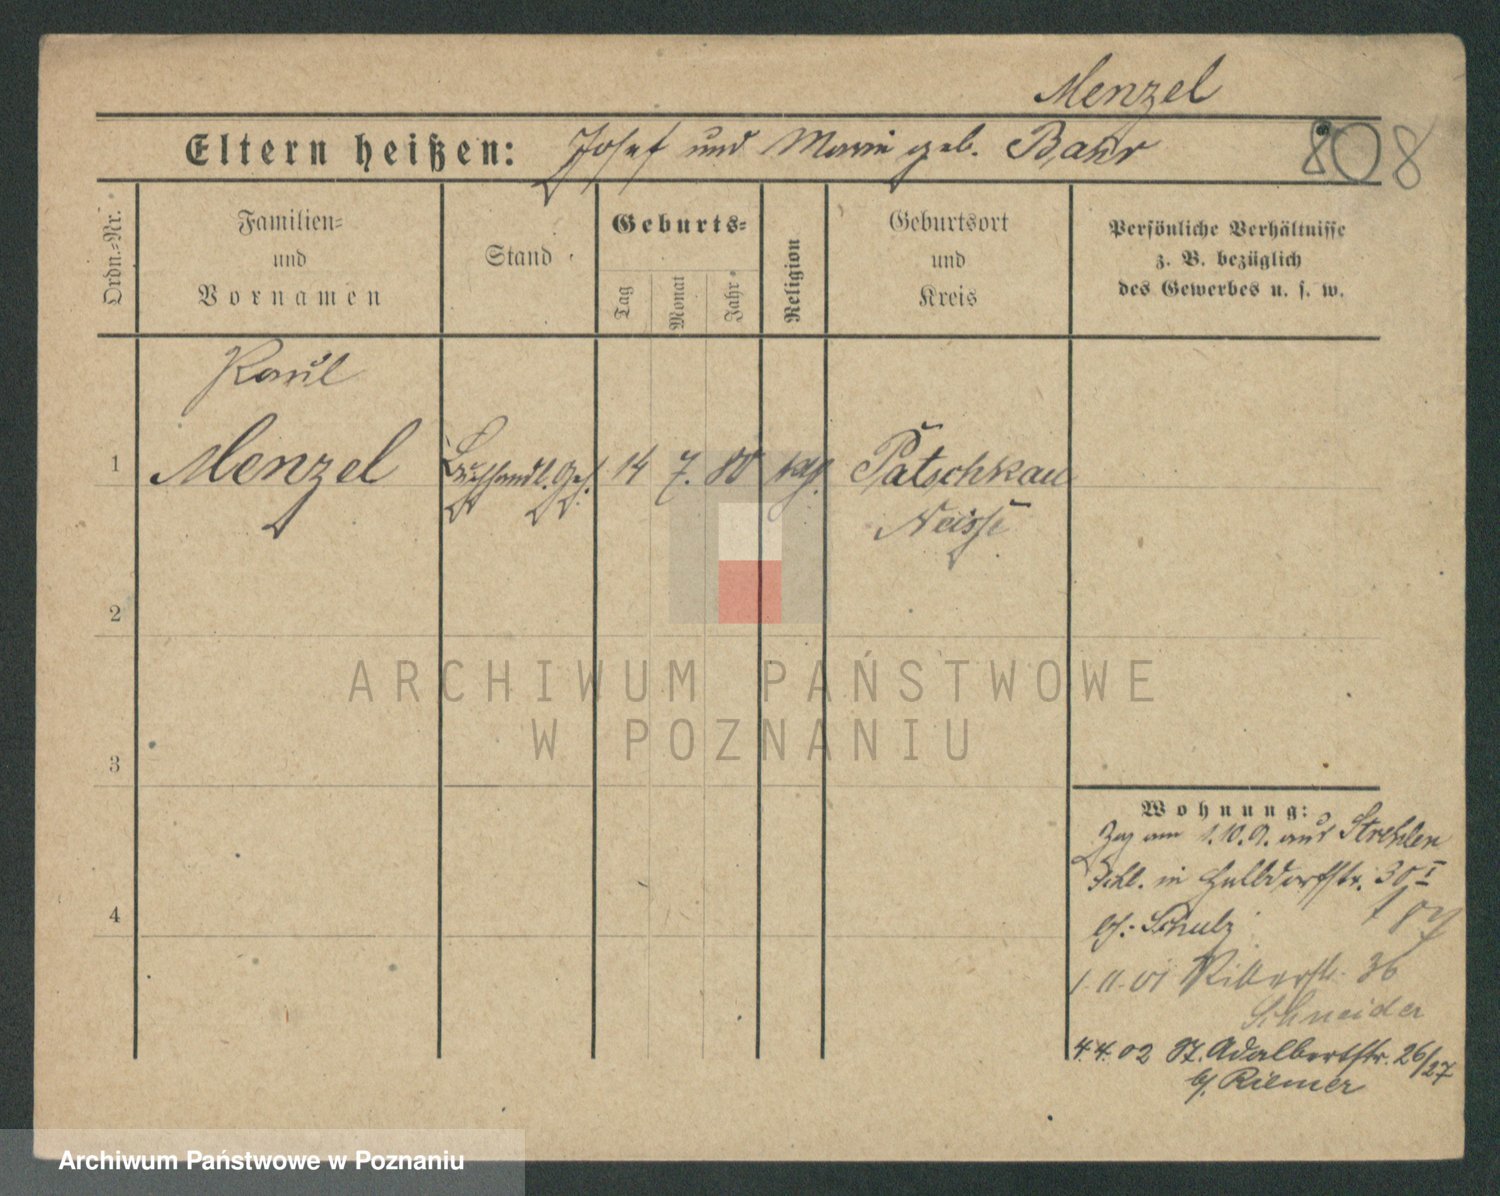 Menzel
Eltern heißen: Josef und Marie geb. Bahr
808
Ordn.-Nr.
Familien-
und
Vornamen
Stand
Geburts-
Tag
Monat
Jahr
Religion
Geburtsort
und
Kreis
Persönliche Verhältnisse
z. B. bezüglich
des Gewerbes u. s. w.
Paul
1 Menzel Buchhandl. Geh. 14 7. 80 kath. Patschkau
Neisse
2
ARCHIWUM PAŃSTWOWE
W POZNANIU
3
4
Wohnung:
Zug am 1.10.0. aus Strehlen
Schl. in Halbdorfstr. 30 I
bei Schulz
1.11.01 Ritterstr. 36
Schneider
4.4.02 St. Adalbertstr. 26/27
b/ Riemer
Archiwum Państwowe w Poznaniu